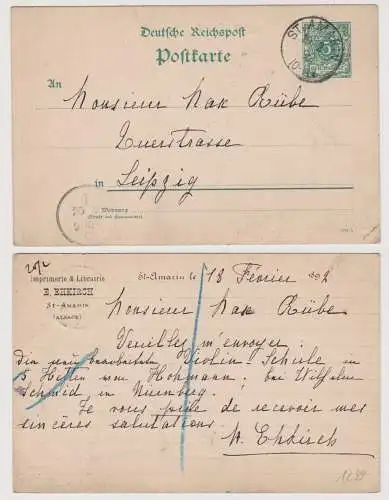 Deutsche Reichspost
Postkarte
ST. AMA
An
Monsieur Max Rübe
Querstrasse
in Leipzig
Wohnung
(Straße und Hausnummer)
Imprimerie & Librairie
E. EHKIRCH
St-Amarin
(ALSACE)
St-Amarin le 13 Février 92
Monsieur Max Rübe
Veuillez m'envoyer
Die neu bearbeitete Violin-Schule in
5 Heften von Hohmann, bei Wilhelm
Schmid in Nürnberg.
Je vous prie de recevoir mes
sincères salutations
Ehkirch